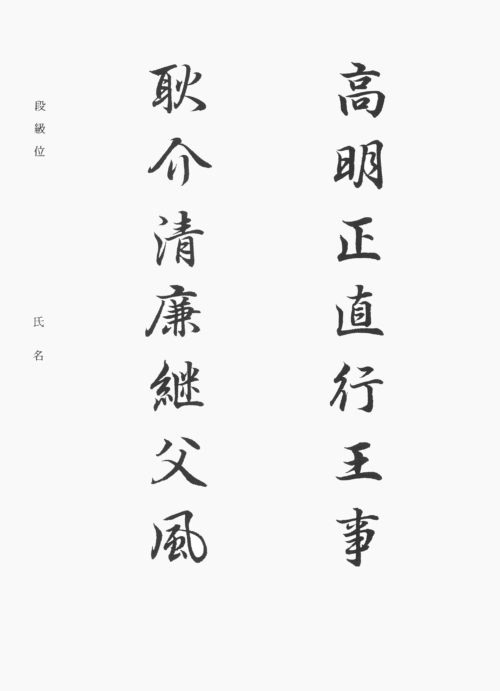 高明正直行王事
耿介清廉継父風
段級位
氏名